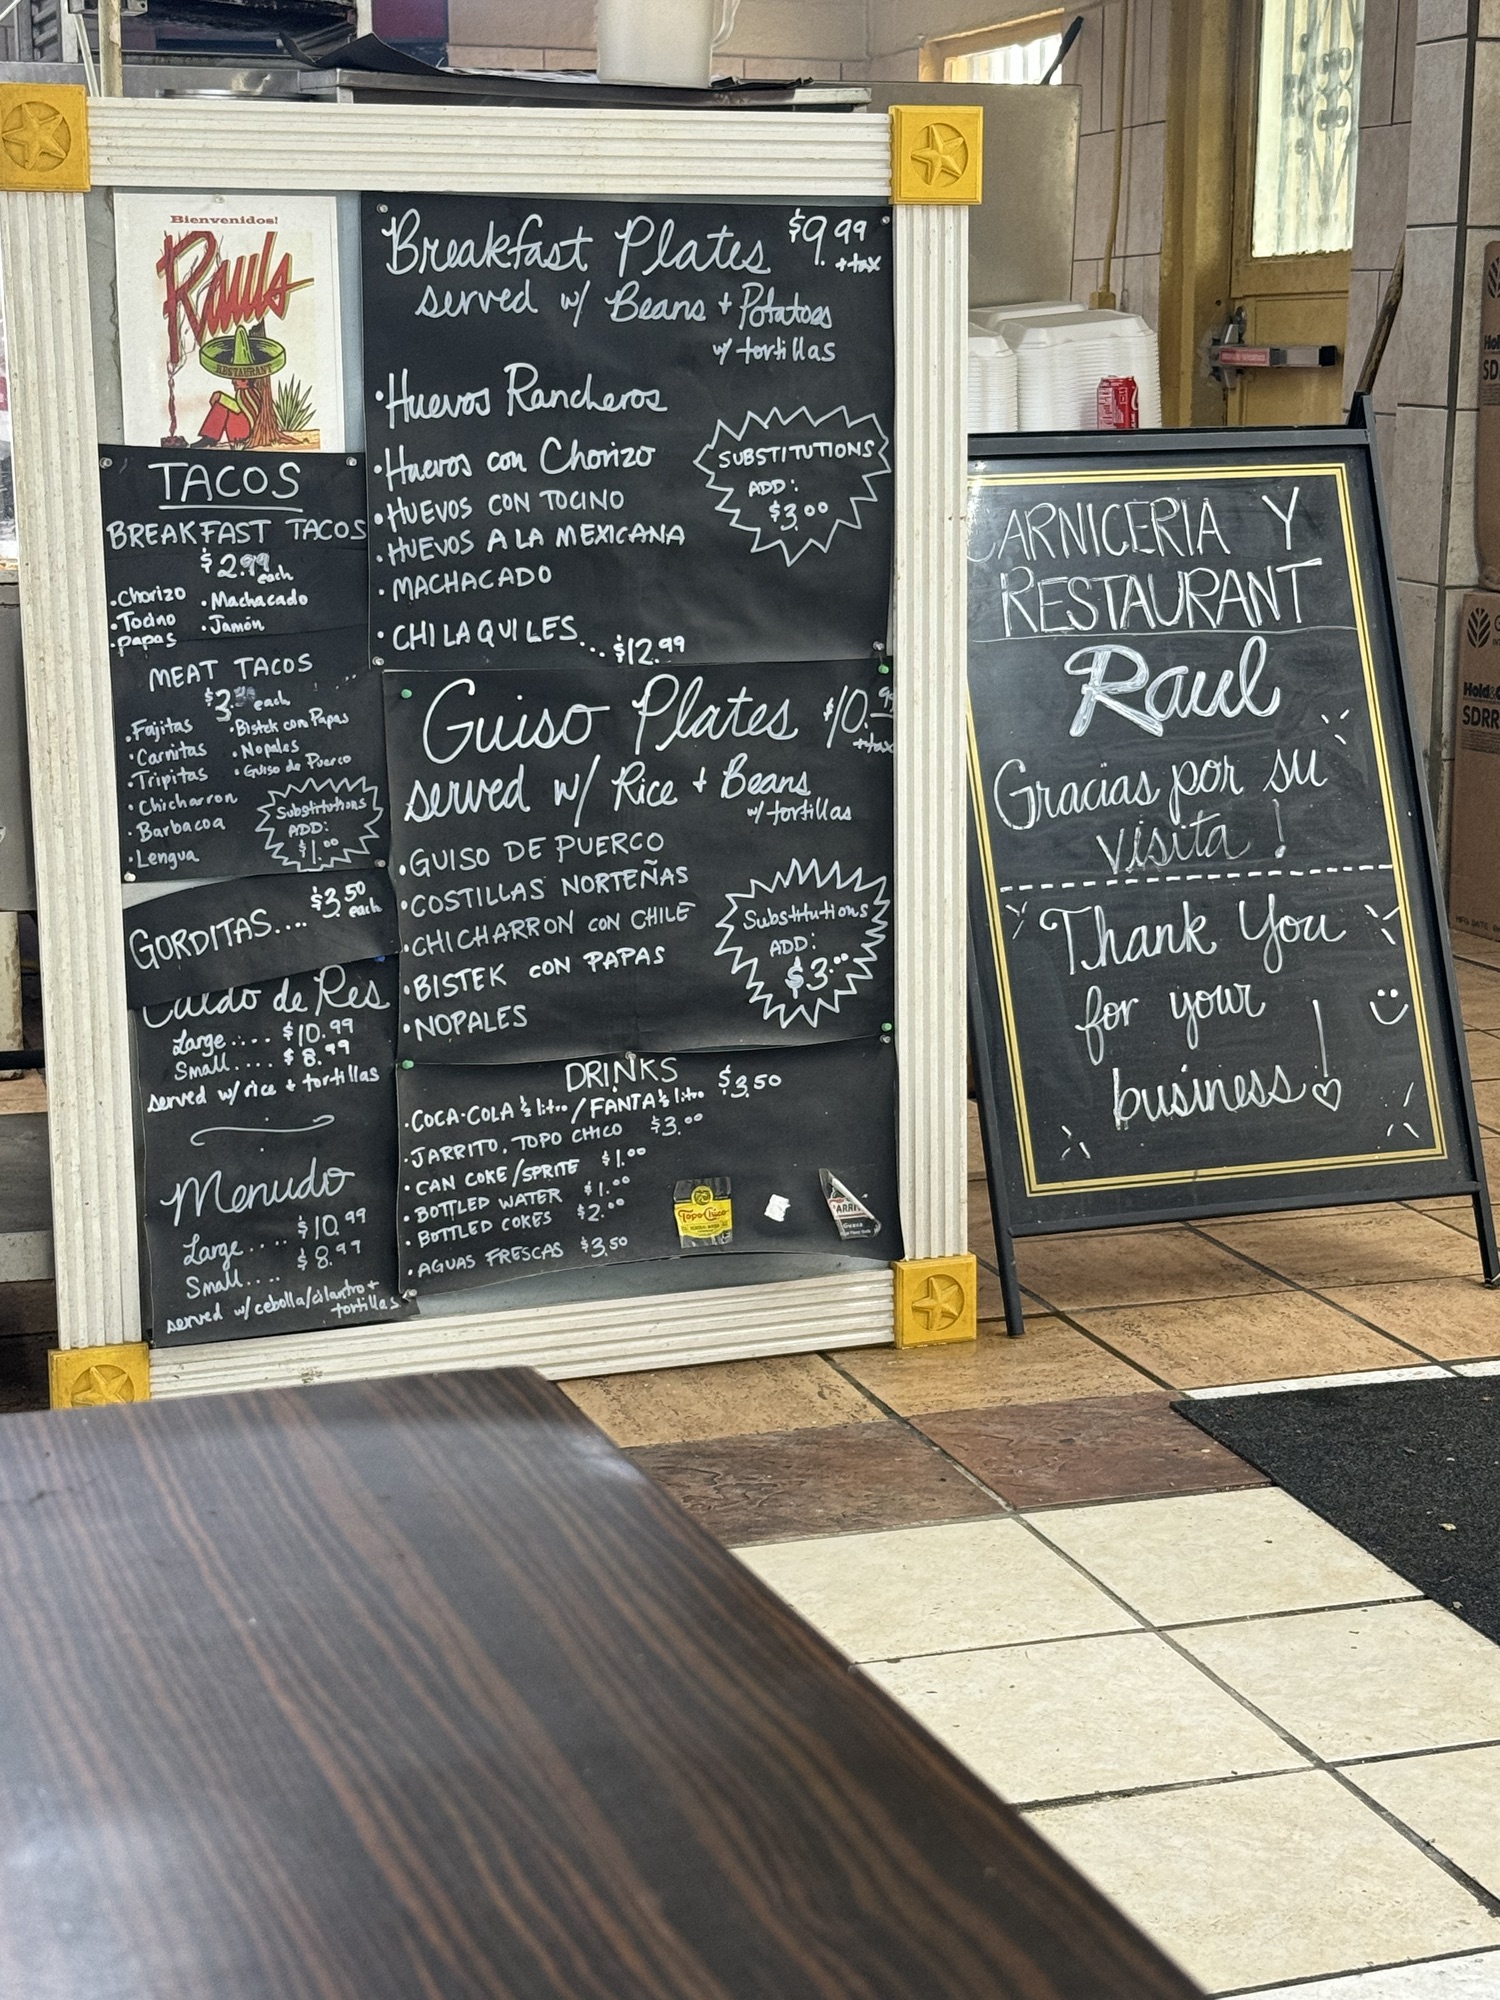 Bienvenidos!
Raul's
RESTAURANT
TACOS
BREAKFAST TACOS
$2.99 each
• Chorizo • Machacado
• Tocino • Jamón
• Papas
MEAT TACOS
$3. each
• Fajitas • Bistek con Papas
• Carnitas • Nopales
• Tripitas • Guiso de Puerco
• Chicharron
• Barbacoa
• Lengua
Substitutions
ADD:
$1.00
GORDITAS.... $3.50 each
Caldo de Res
Large.... $10.99
Small.... $8.99
served w/ rice + tortillas
Menudo
Large.... $10.99
Small.... $8.99
served w/ cebolla/cilantro +
tortillas
Breakfast Plates $9.99
+tax
served w/ Beans + Potatoes
w/ tortillas
• Huevos Rancheros
• Huevos con Chorizo
• HUEVOS CON TOCINO
• HUEVOS A LA MEXICANA
• MACHACADO
• CHILAQUILES... $12.99
SUBSTITUTIONS
ADD:
$3.00
Guiso Plates $10.99
+tax
served w/ Rice + Beans
w/ tortillas
• GUISO DE PUERCO
• COSTILLAS NORTEÑAS
• CHICHARRON CON CHILE
• BISTEK CON PAPAS
• NOPALES
Substitutions
ADD:
$3.00
DRINKS
• COCA-COLA ½ litro / FANTA ½ litro $3.50
• JARRITO, TOPO CHICO $3.00
• CAN COKE/SPRITE $1.00
• BOTTLED WATER $1.00
• BOTTLED COKES $2.00
• AGUAS FRESCAS $3.50
Topo Chico
CARNICERIA Y
RESTAURANT
Raul
Gracias por su
visita!
Thank You
for your
business!
Hold&
SDRR